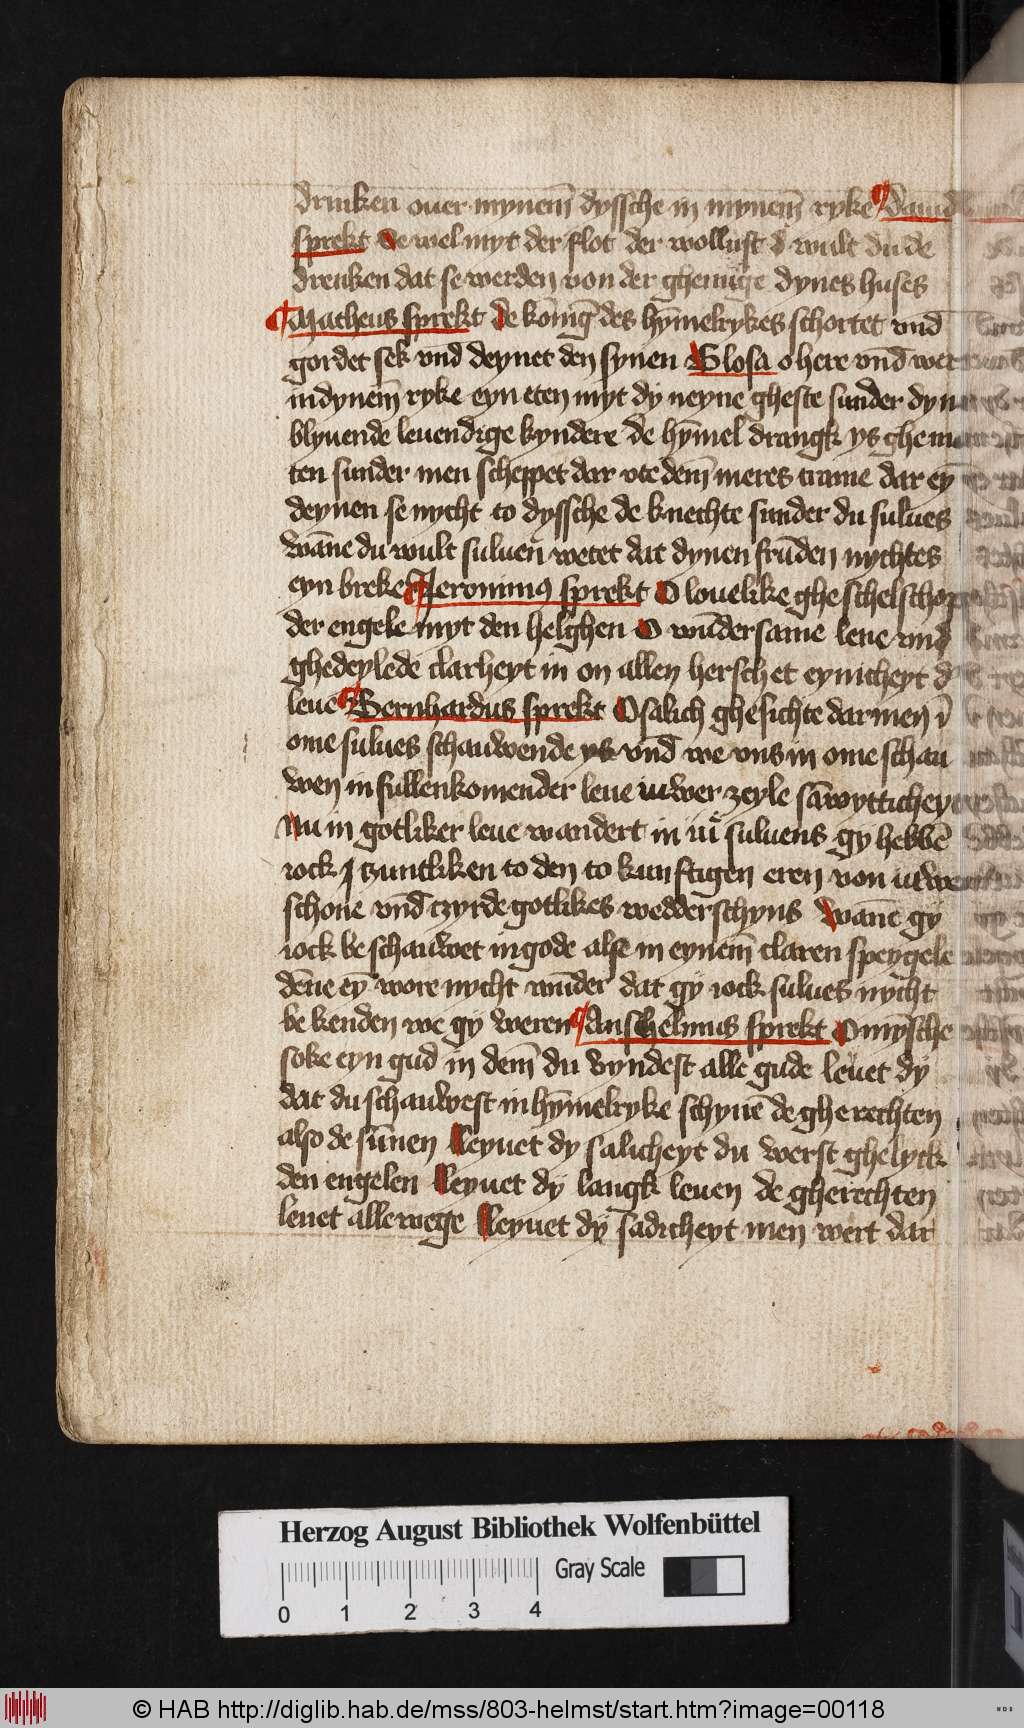 drinken ouer mynem̄ dyssche in mynem̄ ryke ¶ dauid
sprekt Se wel myt der flot der wollust d wult du de
drenken dat se werden von der ghenuge dynes huses
¶ Matheus sprekt De kōnīg des hȳmelrykes schortet vnd̄
gordet sek vnd̄ deynet den synen Glosa o here vnd̄ wer
in dynem̄ ryke eyn eten myt dy neyne gheste sunder dyn
blyuende leuendige kyndere de hȳmel drangk ys ghe
ten sunder men scheppet dar vte dem̄ meres trame dar eȳ
deynen se nycht to dyssche de knechte sunder du sulues
wāne du wult suluen wetet dat dynen frūden nychtes
eyn breke ¶ Jeronimus sprekt O louelike ghe schelschop
der engele myt den helghen O wūdersame leue vnd
ghedeylede clarheyt in on allen hersch et eynicheyt d
leue ¶ Bernhardus sprekt O salich ghesichte dar men ī
ome sulues schauwende ys vnd̄ we vns in ome schau
wen in fullenkomender leue iuwer zeyle sāwytticheyt
Nu in gotliker leue wandert in iu suluens gy hebbē
iock J tzuntliken to den to kunftigen eren von iuwe
schone vnd̄ tzyrde gotlikes wedderschyns Wāne gy
iock be schauwet in gode alse in eynem̄ claren speygele
dēne eȳ wore nycht wūder dat gy iock sulues nycht
be kenden we gy weren ¶ Anshelmus sprekt O mȳsche
soke eyn gud in dem̄ du vyndest alle gude leuet dy
dat du schauwest in hȳmelryke schynē de ghe rechten
also de sūnen Leyuet dy salicheyt du werst ghelyck
den engelen Leyuet dy langk leuen de gherechten
leuet allewege Leyuet dy sadicheyt men wert dar
Herzog August Bibliothek Wolfenbüttel
Gray Scale
0 1 2 3 4
© HAB http://diglib.hab.de/mss/803-helmst/start.htm?image=00118